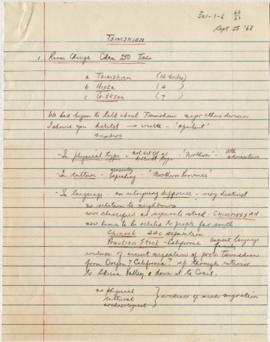 Tsimshian
Sept 25 '68
1. River Change Chan 250 Tues
a Tsimshian
b Niska (4)
c Gitksan (7)
We had begun to talk about Tsimshian major ethnic division
I showed you habitat → wealth
numbers
- In physical type not as
distinct type "Northern" with
- In culture "Northern"
- In language an intriguing difference very distinct
in relation to neighbours
now classified as separate stock CHIMMESYAN
now known to be related to people far south
Chinook
Penutian Stock - California language
family
evidence of ancient migration of proto Tsimshian
from Oregon? California? up through interior
to Skeena Valley & down it to Coast.
no physical
cultural
archaeological
evidence of such migration